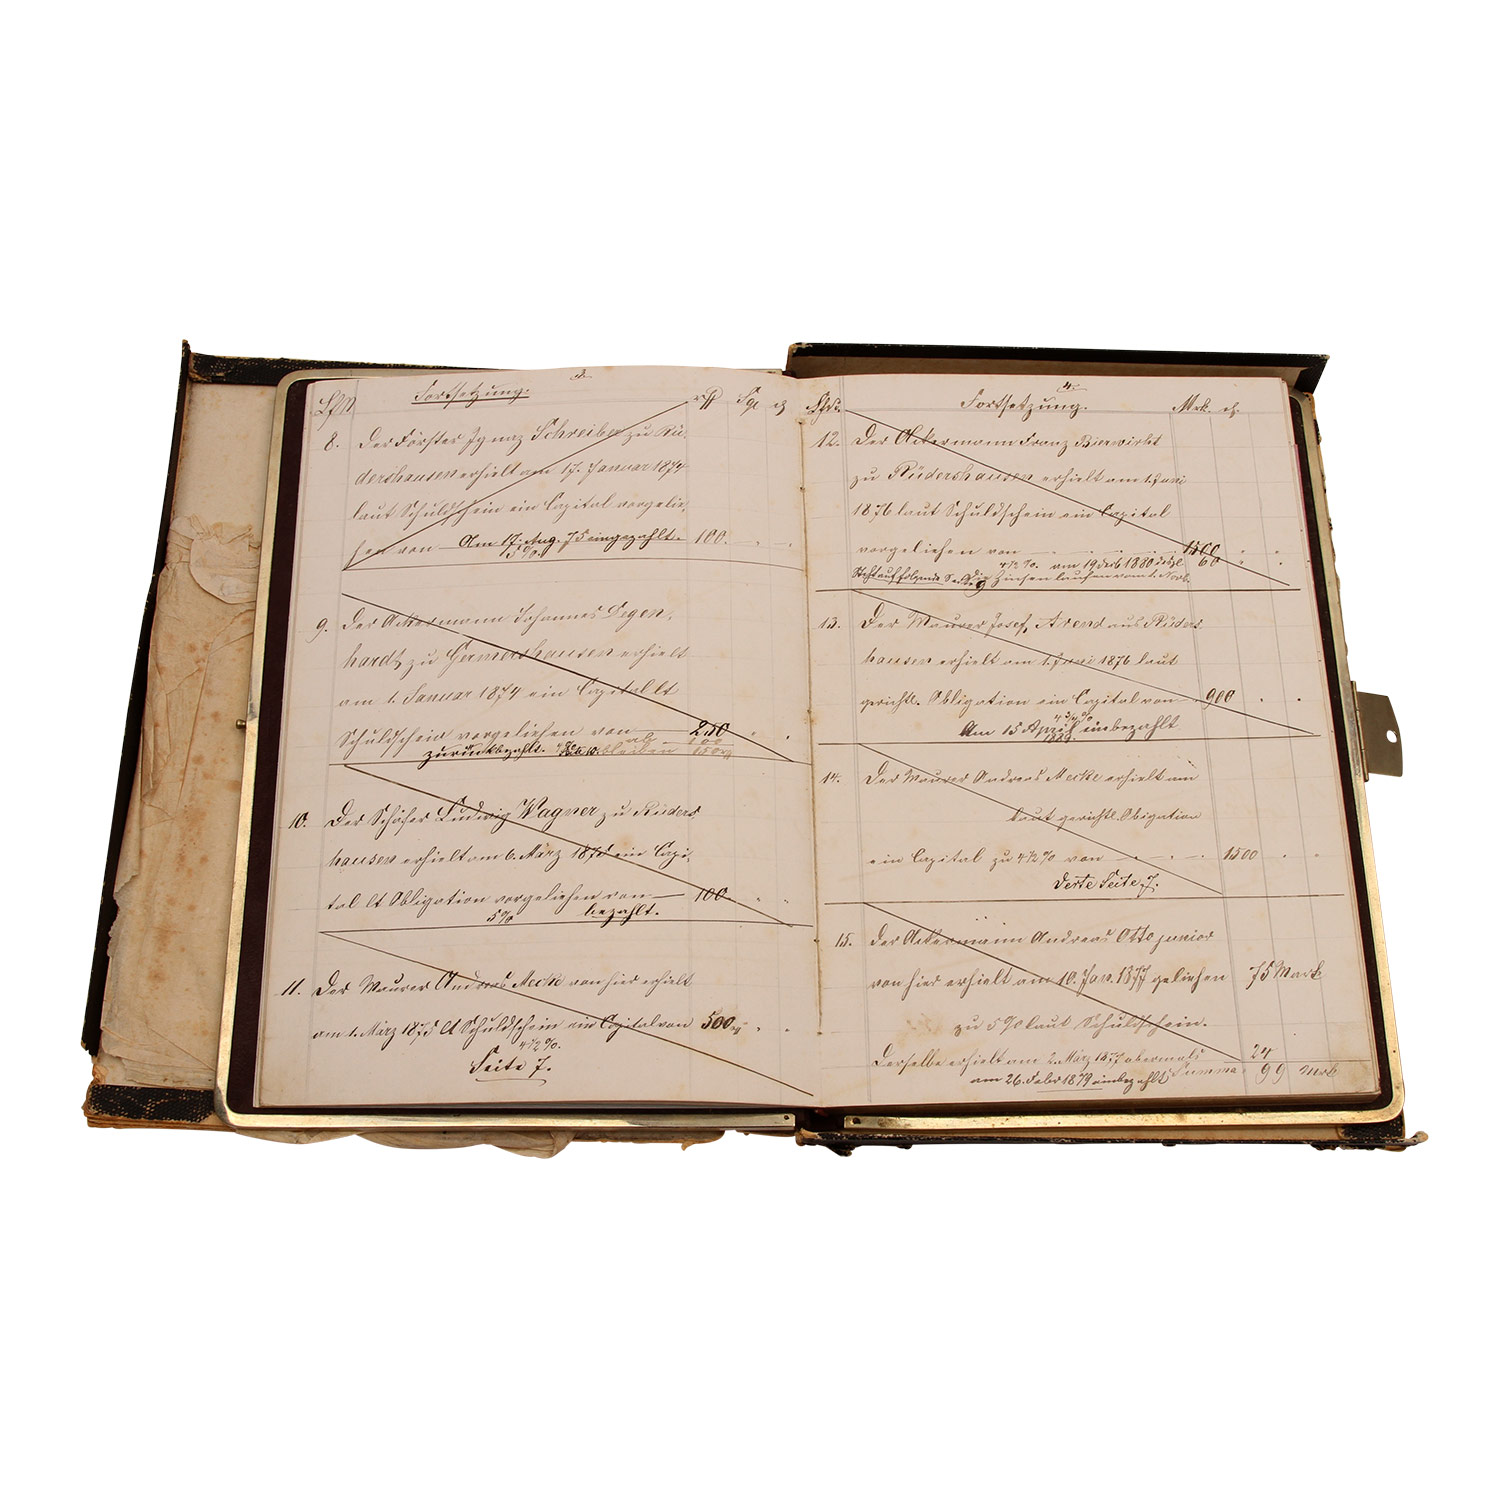 3.
Fortsetzung.
8. Der Förster Ignaz Schreiber zu Rü-
dershausen erhielt am 17. Januar 1874
laut Schuldschein ein Capital vorgelie-
hen von Am 17. Aug. 75 eingezahlt. 100.
5%.
9. Der Ackermann Johannes Degen-
hardt zu Germershausen erhielt
am 1. Januar 1874 ein Capital lt
Schuldschein vorgeliehen von 250
ab 100
zurückbezahlt. bleiben 150
10. Der Schäfer Ludwig Wagner zu Rüders
hausen erhielt am 6. März 1875 ein Capi-
tal lt Obligation vorgeliehen von 100.
5% bezahlt.
11. Der Maurer Andreas Mecke von hier erhielt
am 1. März 1875 lt Schuldschein ein Capital von 500
4½%.
Seite 7.
4.
Fortsetzung. Mrk.
12. Der Ackermann Franz Bierwirth
zu Rüdershausen erhielt am 1. Juni
1876 laut Schuldschein ein Capital
vorgeliehen von 1500
4½%. am 19 1880 60
Steht auf folgende Seite 9 Zinsen laufen vom 1. Novb.
13. Der Maurer Josef Arend aus Rüders
hausen erhielt am 1. Juni 1876 laut
gerichtl. Obligation ein Capital von 900
Am 15 April einbezahlt
14. Der Maurer Andreas Mecke erhielt am
laut gerichtl. Obligation
ein Capital zu 4½% von 1500
Seite 7.
15. Der Ackermann Andreas Otto junior
von hier erhielt am 10. Jan. 1877 geliehen 75 Mark
zu 5% laut Schuldschein.
Derselbe erhielt am 2. März 1877 abermals 24
am 26. Febr 1879 einbezahlt Summa 99 Mrk